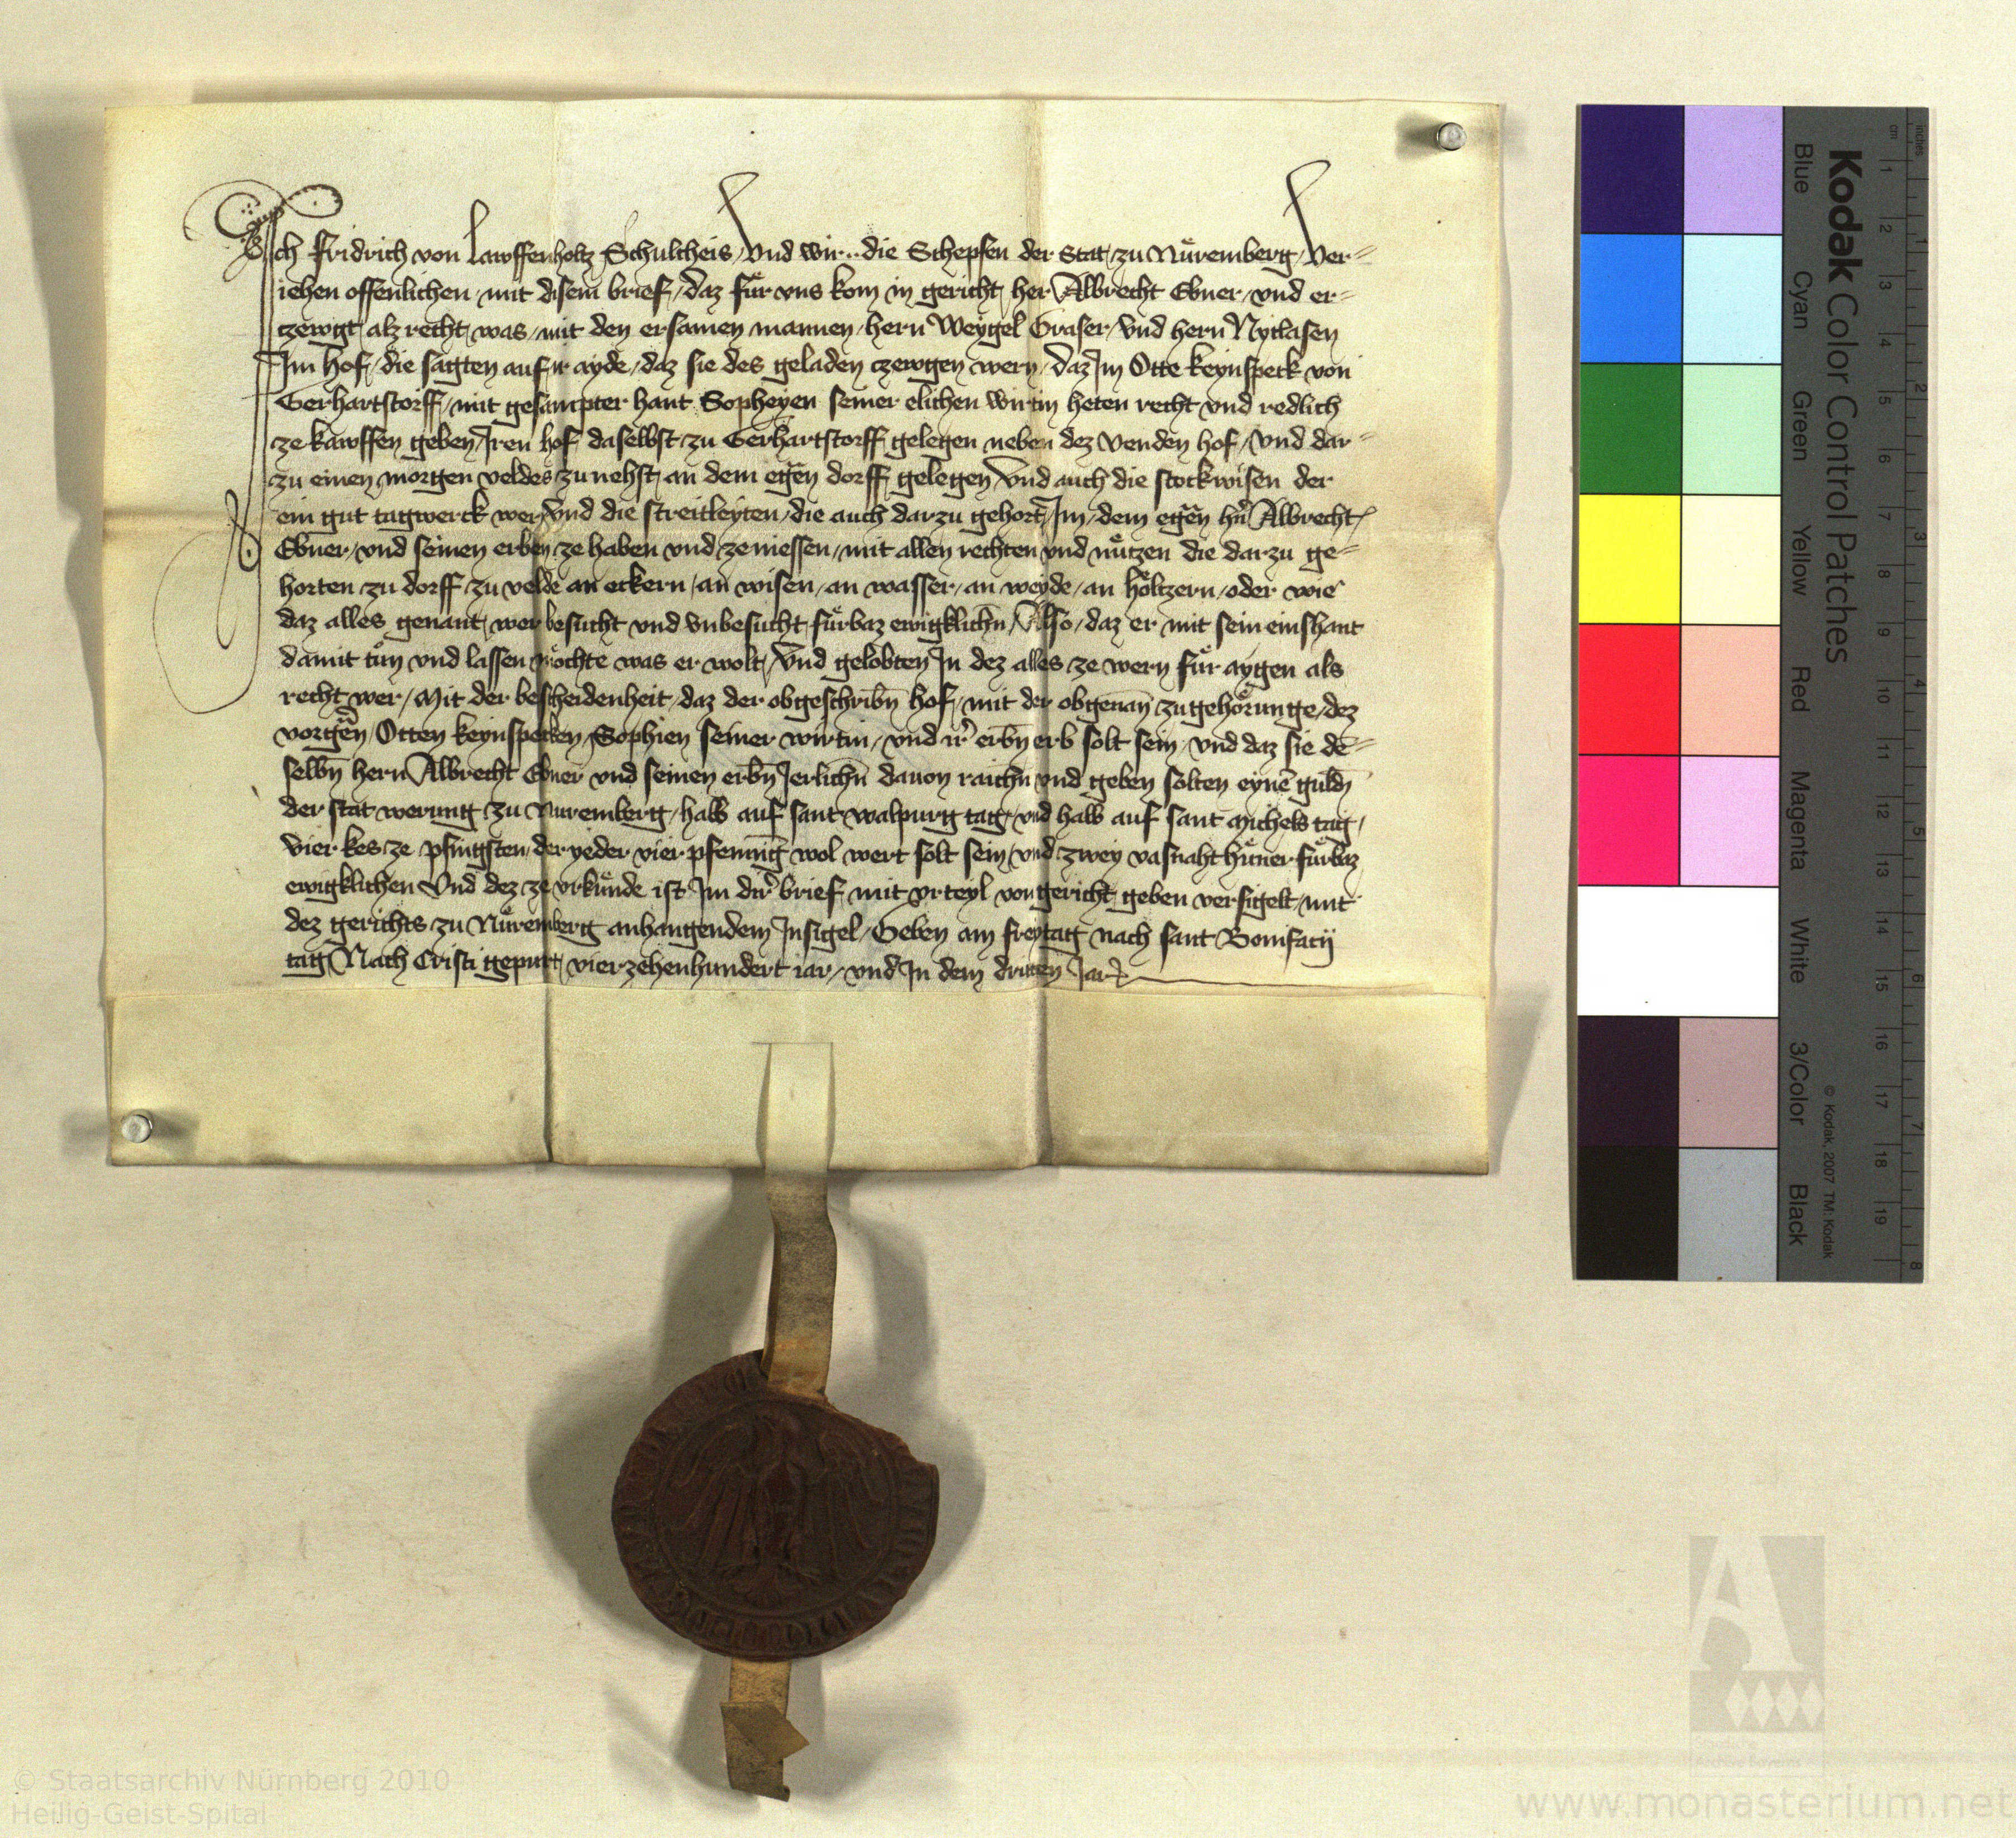 Ich Fridrich von Lawffenholtz Schultheis, vnd wir.. die Schepfen der Stat zu Nuͤremberg, Ver=
iehen offenlichen, mit disem brief, daz fuͤr vns kom in gericht, her Albrecht Ebner, vnd er=
czewgt alz recht was, mit den ersamen mannen, hern Weygel Graser, vnd hern Nyclasen
Im Hof, die sagten auf ir ayde, daz sie des geladen czewgen wern, daz Im Otte keynspeck von
Gerhartstorff, mit gesampter hant Sopheyen seiner elichen wirtin heten recht vnd redlich
ze kawffen geben, Iren hof daselbst zu Gerhartstorff gelegen neben dez venden hof, vnd dar=
zu einen morgen veldes zu nehst an dem egen̄ dorff gelegen, vnd auch die stockwisen der
ein gut tagwerck wer, vnd die streitleyten, die auch darzu gehort̄, Im, dem egen̄ hn̄ Albrecht
Ebner, vnd seinen erben ze haben vnd ze niessen, mit allen rechten vnd nuͤtzen die darzu ge=
horten zu dorff zu velde an eckern, an wisen, an wasser, an weyde, an hoͤltzern, oder wie
daz alles genant wer besucht vnd vnbesucht fuͤrbaz ewigklichn̄, Also, daz er mit sein einshant
damit tuͦn vnd lassen moͤchte was er wolt, vnd gelobten In dez alles ze wern fuͤr aygen als
recht wer, Mit der bescheidenheit, daz der obgeschribn̄ hof, mit der obgenan̄ zugehoͤrunge, dez
vorgen̄ Otten keynspecken, Sophien seiner wirtin, vnd ir̄ erbn̄ erb solt sein, vnd daz sie de=
selbn̄ hern Albrecht Ebner vnd seinen erbn̄ Jerlichn̄ dauon raichn̄ vnd geben solten eynē guldn̄
der stat werung zu Nuremberg, halb auf sant walpurg tag, vnd halb auf sant Michels tag,
vier kes ze pfingsten, der yeder vier pfenniḡ wol wert solt sein, vnd zwey vasnaht huͤner fuͤrbaz
ewigklichen Vnd dez ze vrkuͤnde ist Im dir̄ brief mit vrteyl von gericht geben versigelt, mit
dez gerichts zu Nuͤremberg anhangendem Insigel, Geben am freytag nach sant Bonifacij
tag Nach Cristi gepurt, vierzehenhundert iar, vnd In dem dritten Jar
Kodak Color Control Patches
Blue Cyan Green Yellow Red Magenta White 3/Color Black
© Kodak, 2007 TM: Kodak
inches 1 2 3 4 5 6 7 8
cm 1 2 3 4 5 6 7 8 9 10 11 12 13 14 15 16 17 18 19
© Staatsarchiv Nürnberg 2010
Heilig-Geist-Spital
www.monasterium.net